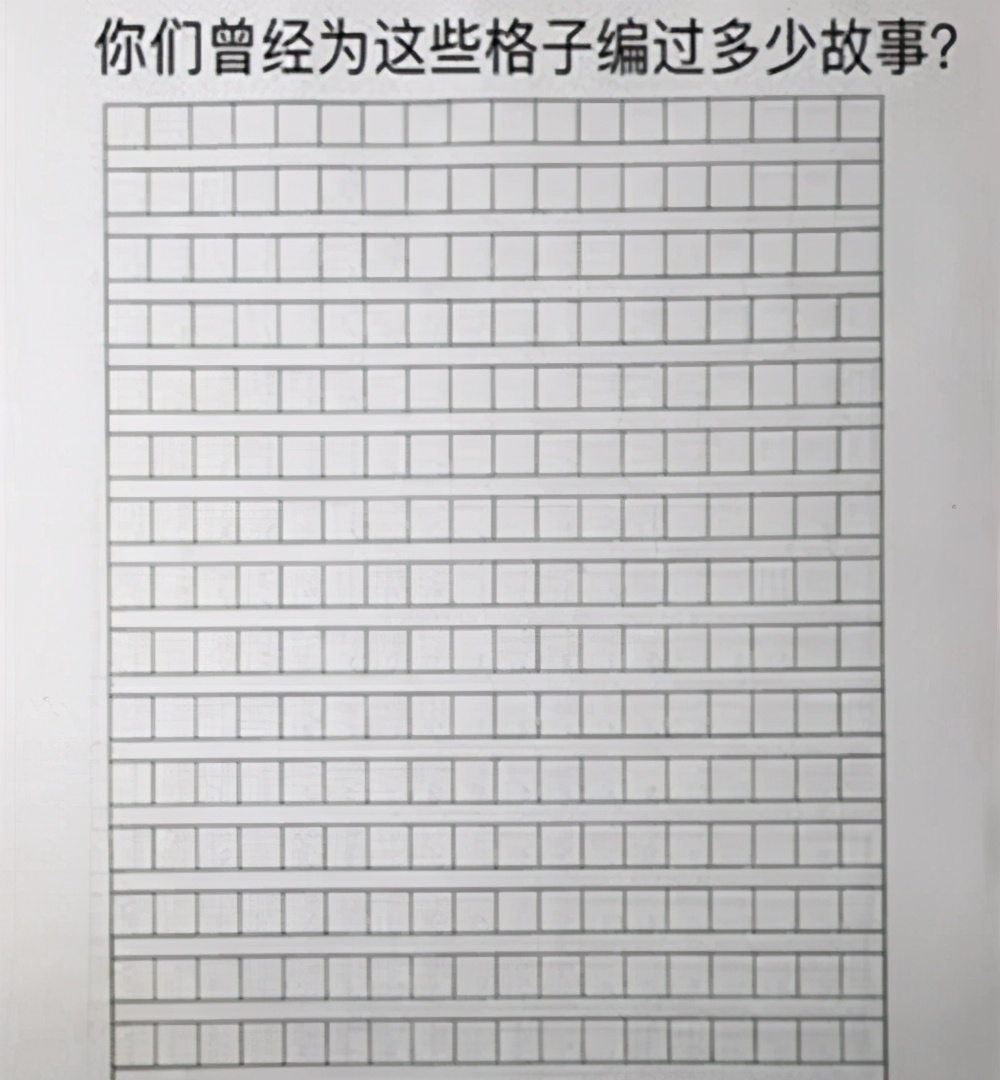 你们曾经为这些格子编过多少故事?